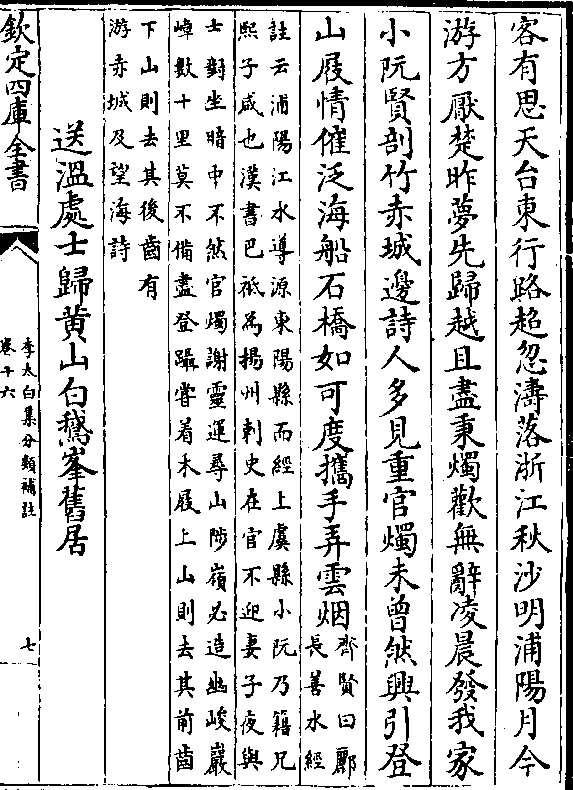 客有思天台東行路超忽濤落浙江秋沙明浦陽月今
游方厭楚昨夢先歸越且盡秉燭歡無辭凌晨發我家
小阮賢剖竹赤城邊詩人多見重官燭未曾然興引登
山屐情催泛海船石橋如可度攜手弄雲烟
齊賢曰酈
長善水經
註云浦陽江水導源東陽縣而經上虞縣小阮乃籍兄
熙子咸也漢書巴祗為揚州刺史在官不迎妻子夜與
士對坐暗中不然官燭謝靈運尋山陟嶺必造幽峻巖
嶂數十里莫不備盡登躡甞着木屐上山則去其前齒
下山則去其後齒有
游赤城及望海詩
送溫處士歸黄山白鵝峯舊居
欽定四庫全書
李太白集分類補註
卷十六
七